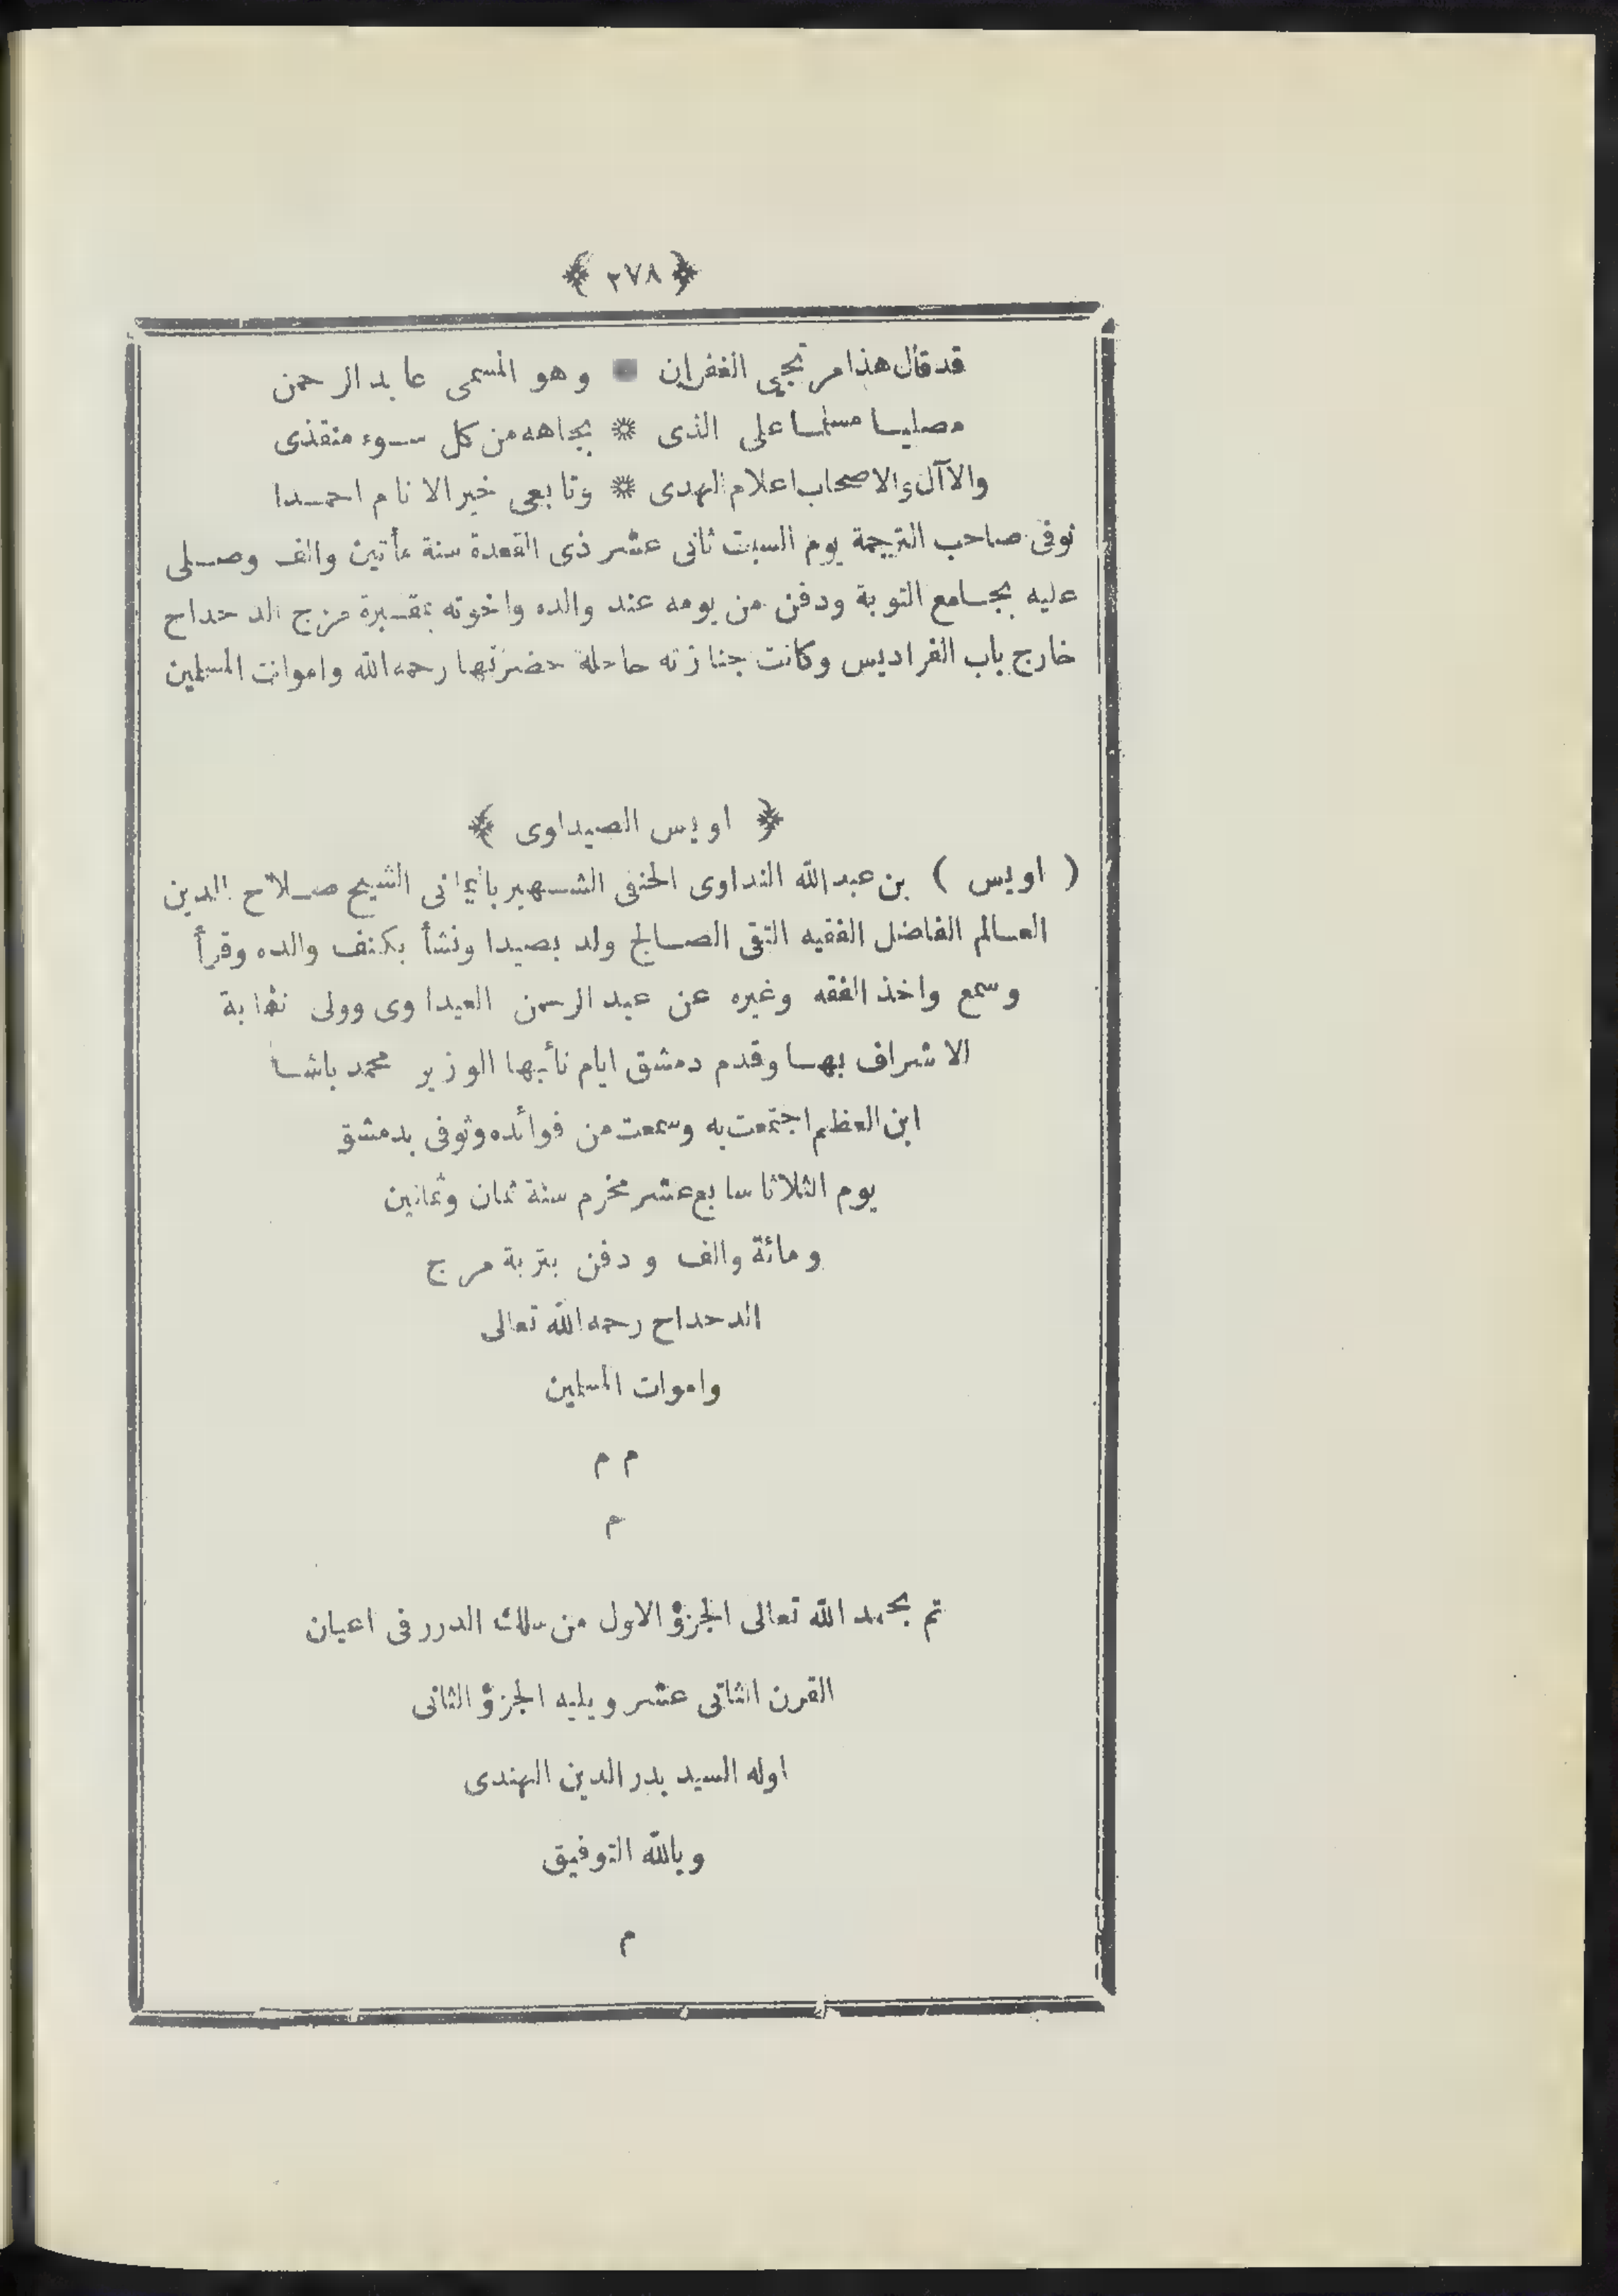 ﴿ ٢٧٨ ﴾
قد قال هذا مرتجى الغفران * وهو المسمى عابد الرحمن
مصليا مسلما على الذى * بجاهه من كل سوء منقذى
والآآل والاصحاب اعلام الهدى * وتابعى خير الانام احمدا
توفى صاحب الترجمة يوم السبت ثانى عشر ذى القعدة سنة مأتين والف وصلى
عليه بجامع التوبة ودفن من يومه عند والده واخوته بمقبرة مرج الدحداح
خارج باب الفراديس وكانت جنازته حافلة حضرتها رحمه الله واموات المسلمين
﴿ اويس الصيداوى ﴾
( اويس ) بن عبد الله النداوى الحنفى الشهير الشيخ صلاح الدين
العالم الفاضل الفقيه التقى الصالح ولد بصيدا ونشأ بكنف والده وقرأ
وسمع واخذ الفقه وغيره عن عبد الرحمن العيداوى وولى نقابة
الاشراف بها وقدم دمشق ايام نأبها الوزير محمد باشا
ابن العظم اجتمعت به وسمعت من فوائده وتوفى بدمشق
يوم الثلاثا سابع عشر محرم سنة ثمان وثمانين
ومائة والف ودفن بتربة مرج
الدحداح رحمه الله تعالى
واموات المسلمين
م م
م
تم بحمد الله تعالى الجزؤ الاول من سلك الدرر فى اعيان
القرن الثانى عشر ويليه الجزؤ الثانى
اوله السيد بدر الدين الهندى
وبالله التوفيق
م